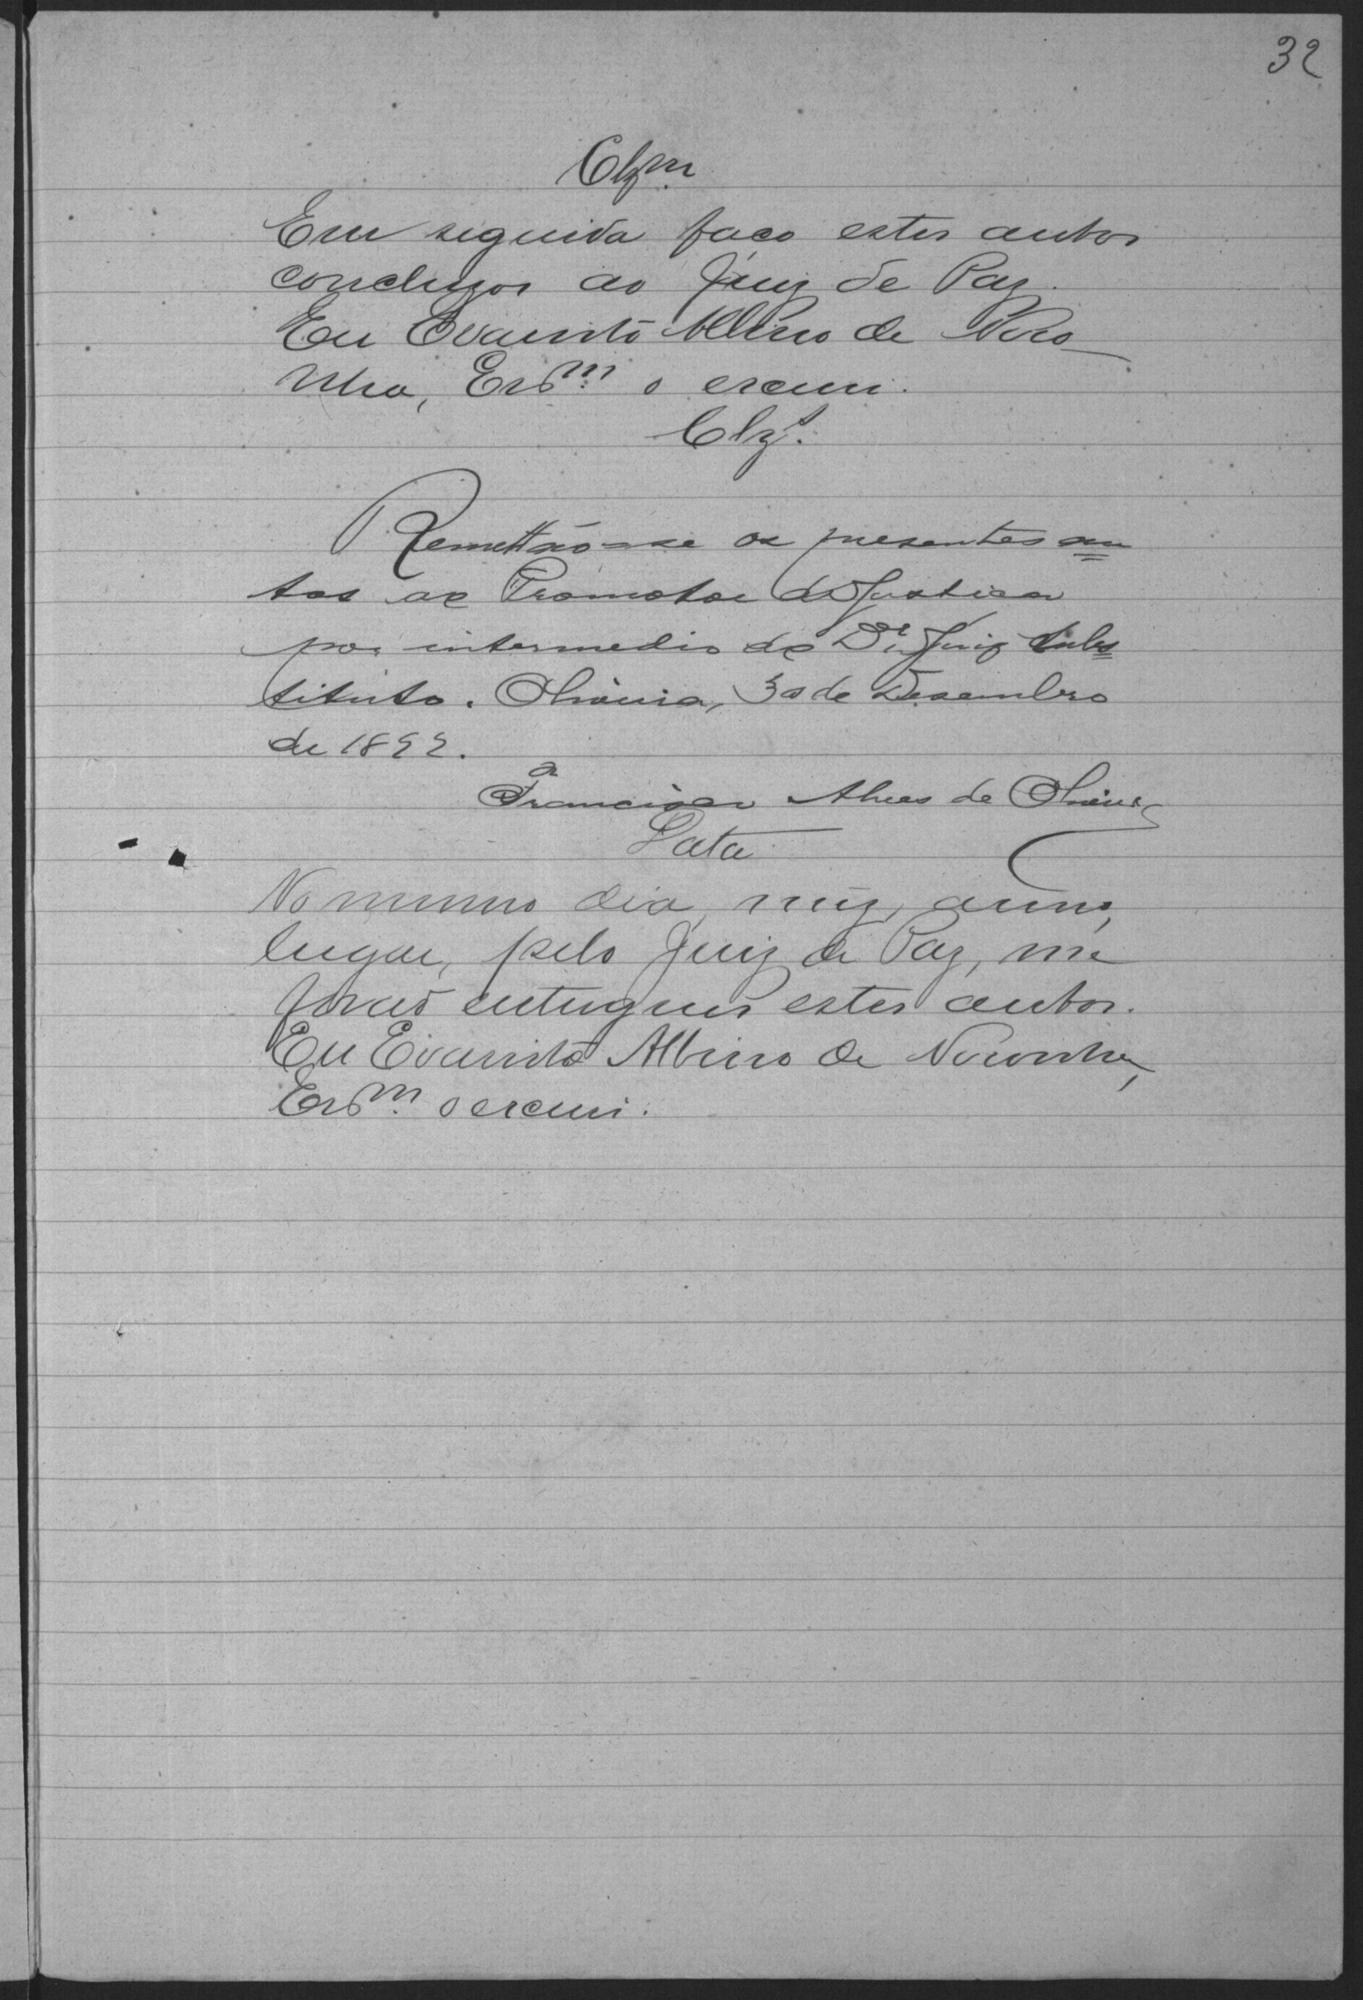 32
Clzm
Em seguida faco estes autos
concluzos ao Juiz de Paz.
Eu Evaristo Albino de Noro-
nha, Escm. o escrevi.
Clz.
Remettão-se os presentes au=
tos ao Promotor da Justica
por intermedio do Dr. Juiz Subs=
tituto. Oliveira, 30 de Desembro
de 1899.
Francisco Alves de Oliveira
Data
No mesmo dia, mez, anno,
lugar, pelo Juiz de Paz, me
forão entregues estes autos.
Eu Evaristo Albino de Noronha,
Escm. o escrevi.